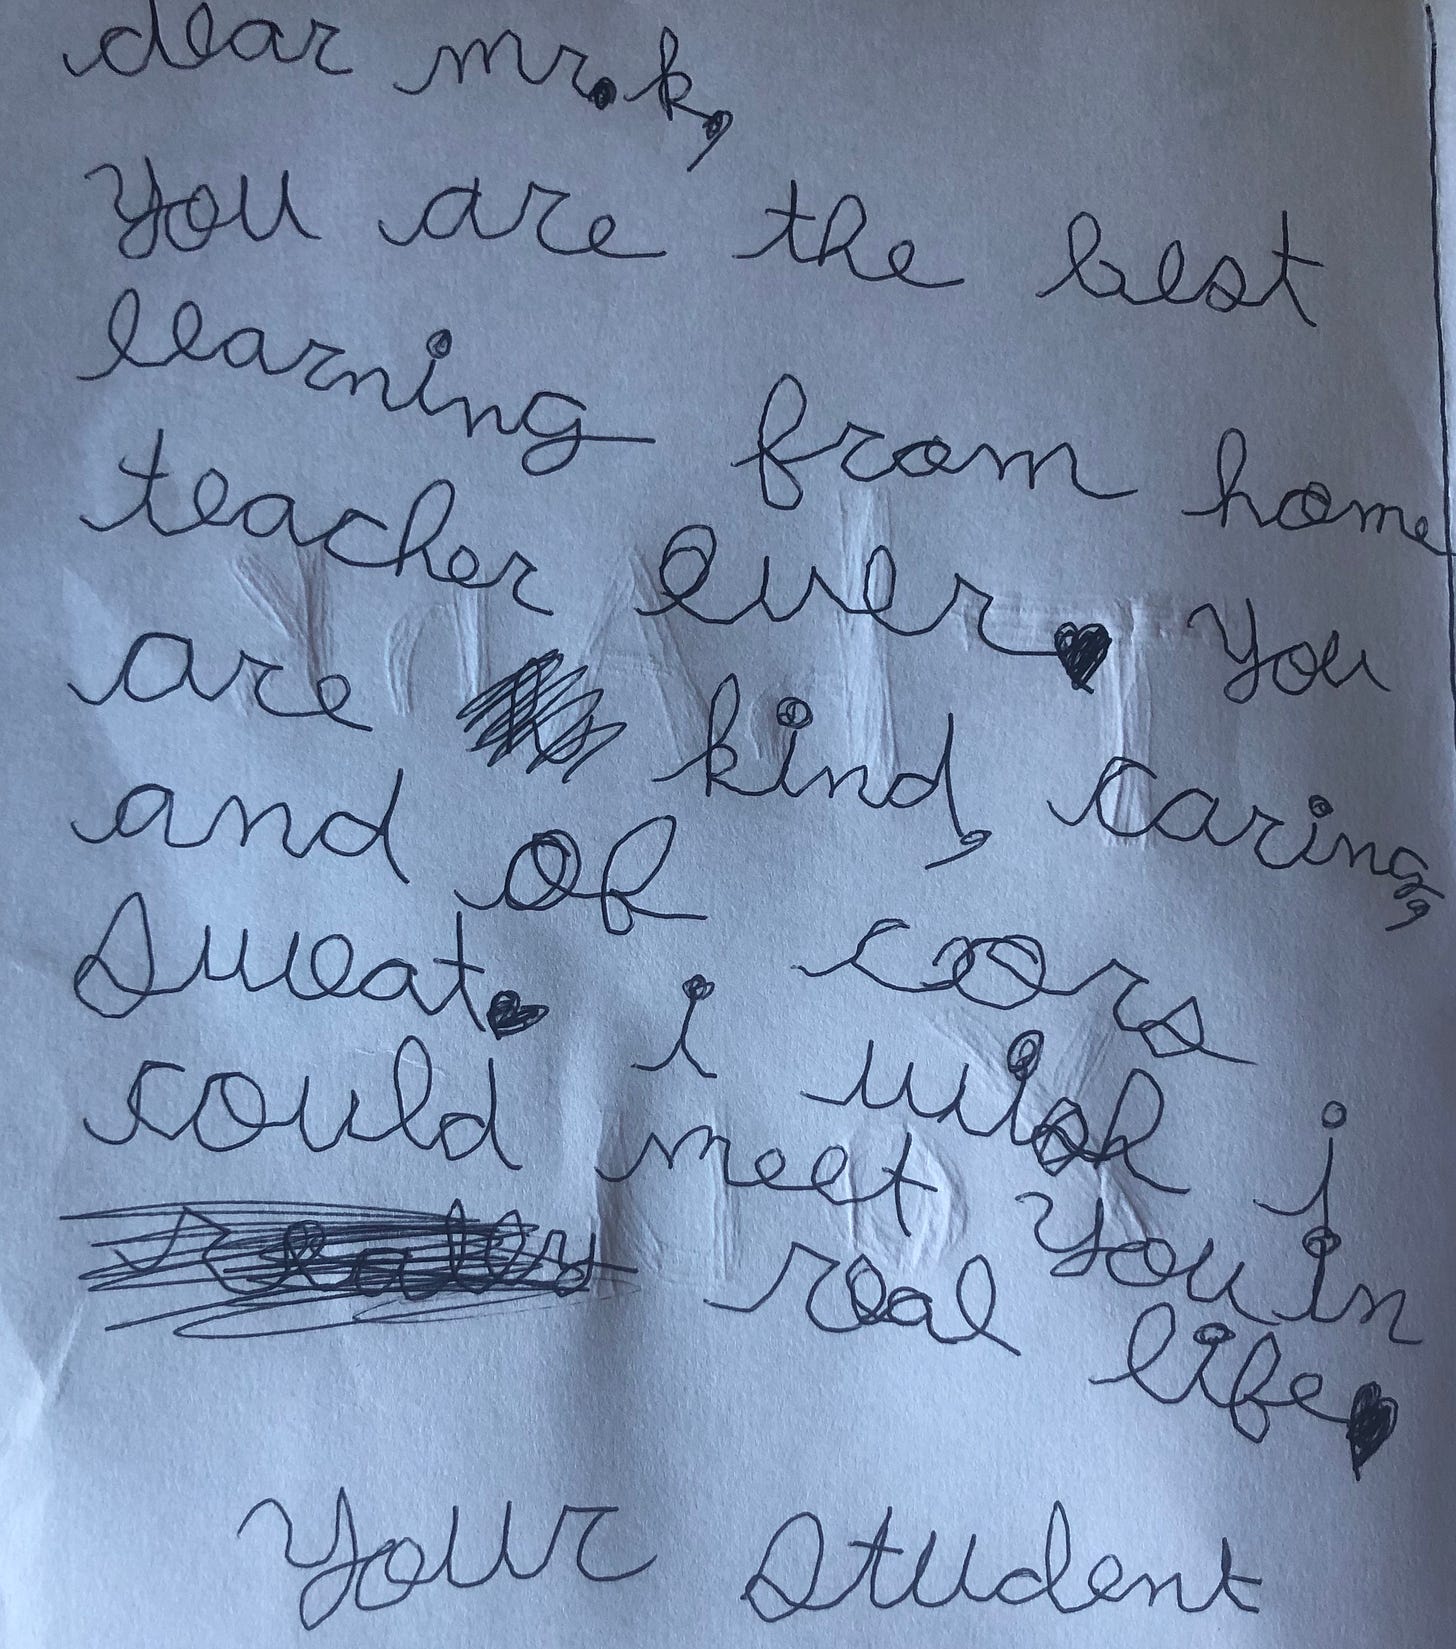 dear mr. k,
You are the best
learning from home
teacher ever♥ You
are kind, caring,
and of cors
sweat♥ i wish i
could meet you in
real life♥
Your student